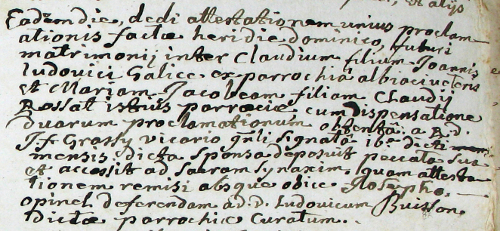 et alijs
Eadem die, dedi attestationem unius proclam
ationis factæ heri die dominico, futuri
matrimonij inter Claudium filium Joannis
Ludovici Galice ex parrochia
et Mariam Jacobeam filiam Claudij
Rossat istius parrociæ cum dispensatione
duarum proclamationum obtenta a R. d.
Grassy vicario gnli signata dicti
mensis. dicta sponsa deposuit peccata sua
et accessit ad sacram synaxim. quam attesta
tionem remisi absque obice Josepho
opinel deferendam ad d. Ludovicum Buisson
dictæ parrochiæ curatum.